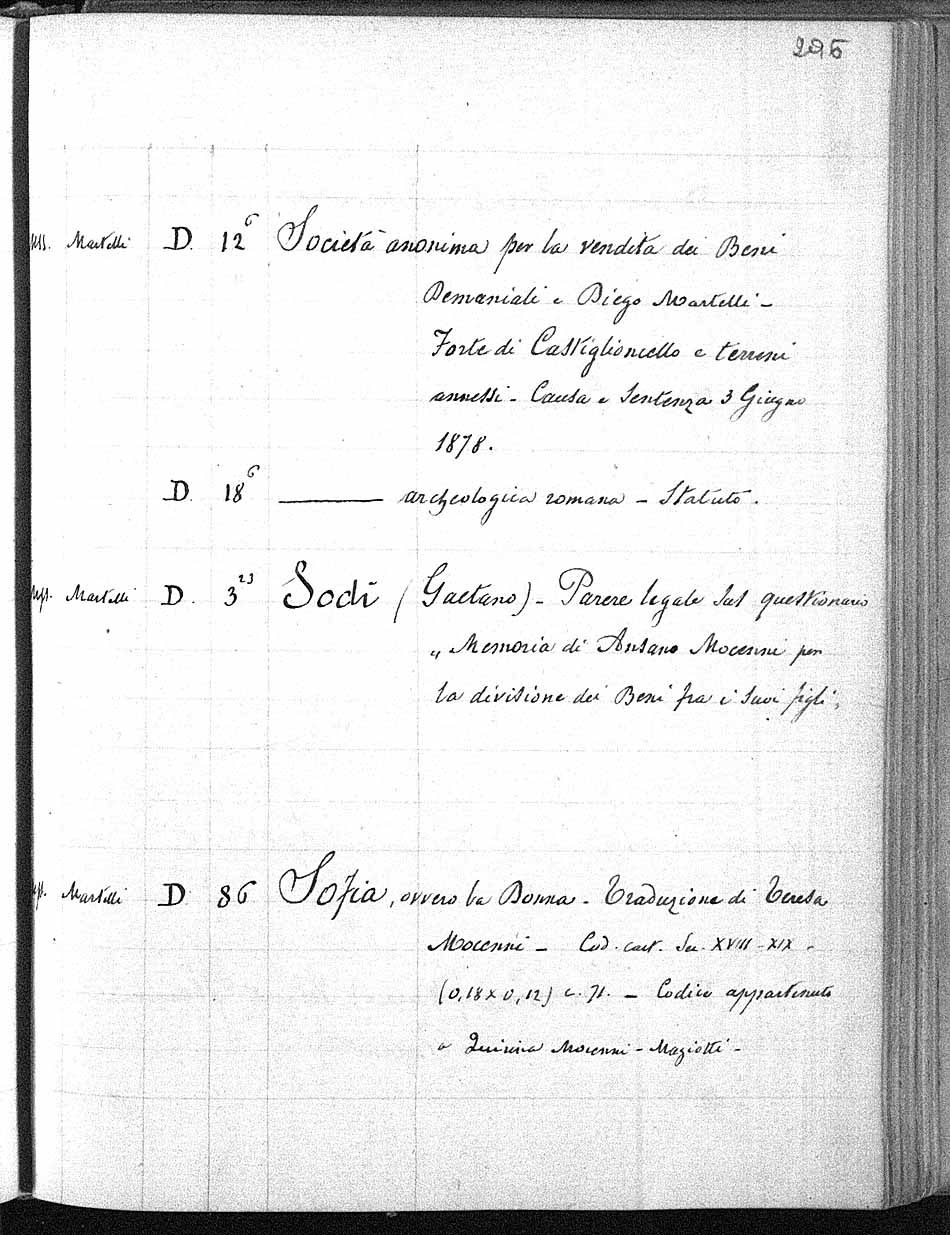 296
Mss. Martelli D. 12⁶ Società anonima per la vendita dei Beni
Demaniali e Diego Martelli -
Forte di Castiglioncello e terreni
annessi - Causa e Sentenza 3 Giugno
1878.
D. 18⁶ ——— archeologica romana - Statuto.
Mss. Martelli D. 3²³ Sodi (Gaetano) - Parere legale sul questionario
„ Memoria di Ansano Mocenni per
la divisione dei Beni fra i suoi figli „
Mss. Martelli D 86 Sofia, ovvero la Donna - Traduzione di Teresa
Mocenni - Cod. cart. Sec. XVIII-XIX -
(0,18 x 0,12) c. 71. - Codice appartenuto
a Quirina Mocenni - Magiotti -